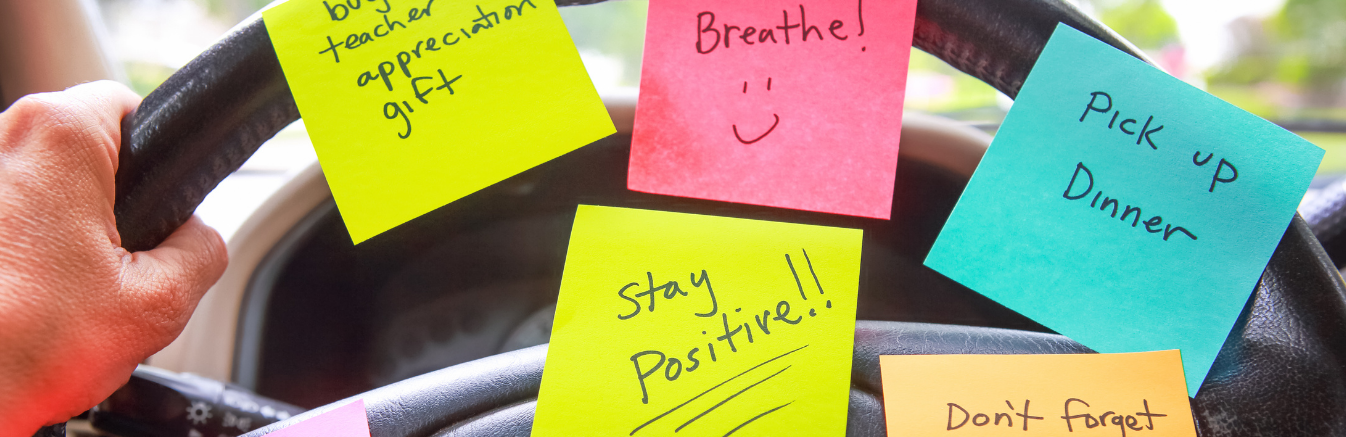 buy
teacher
appreciation
gift
Breathe!
Pick up
Dinner
Stay
Positive!!
Don't forget